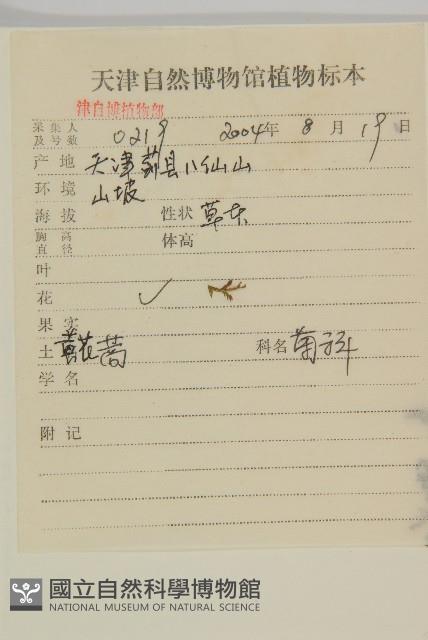 天津自然博物馆植物标本
津自博植物部
采集人及号数 0219 2004年 8月19日
产地 天津蓟县八仙山
环境 山坡
海拔 性状 草本
胸高直径 体高
叶
花 ✓
果实
土 黄花蒿 科名 菊科
学名
附记
國立自然科學博物館
NATIONAL MUSEUM OF NATURAL SCIENCE